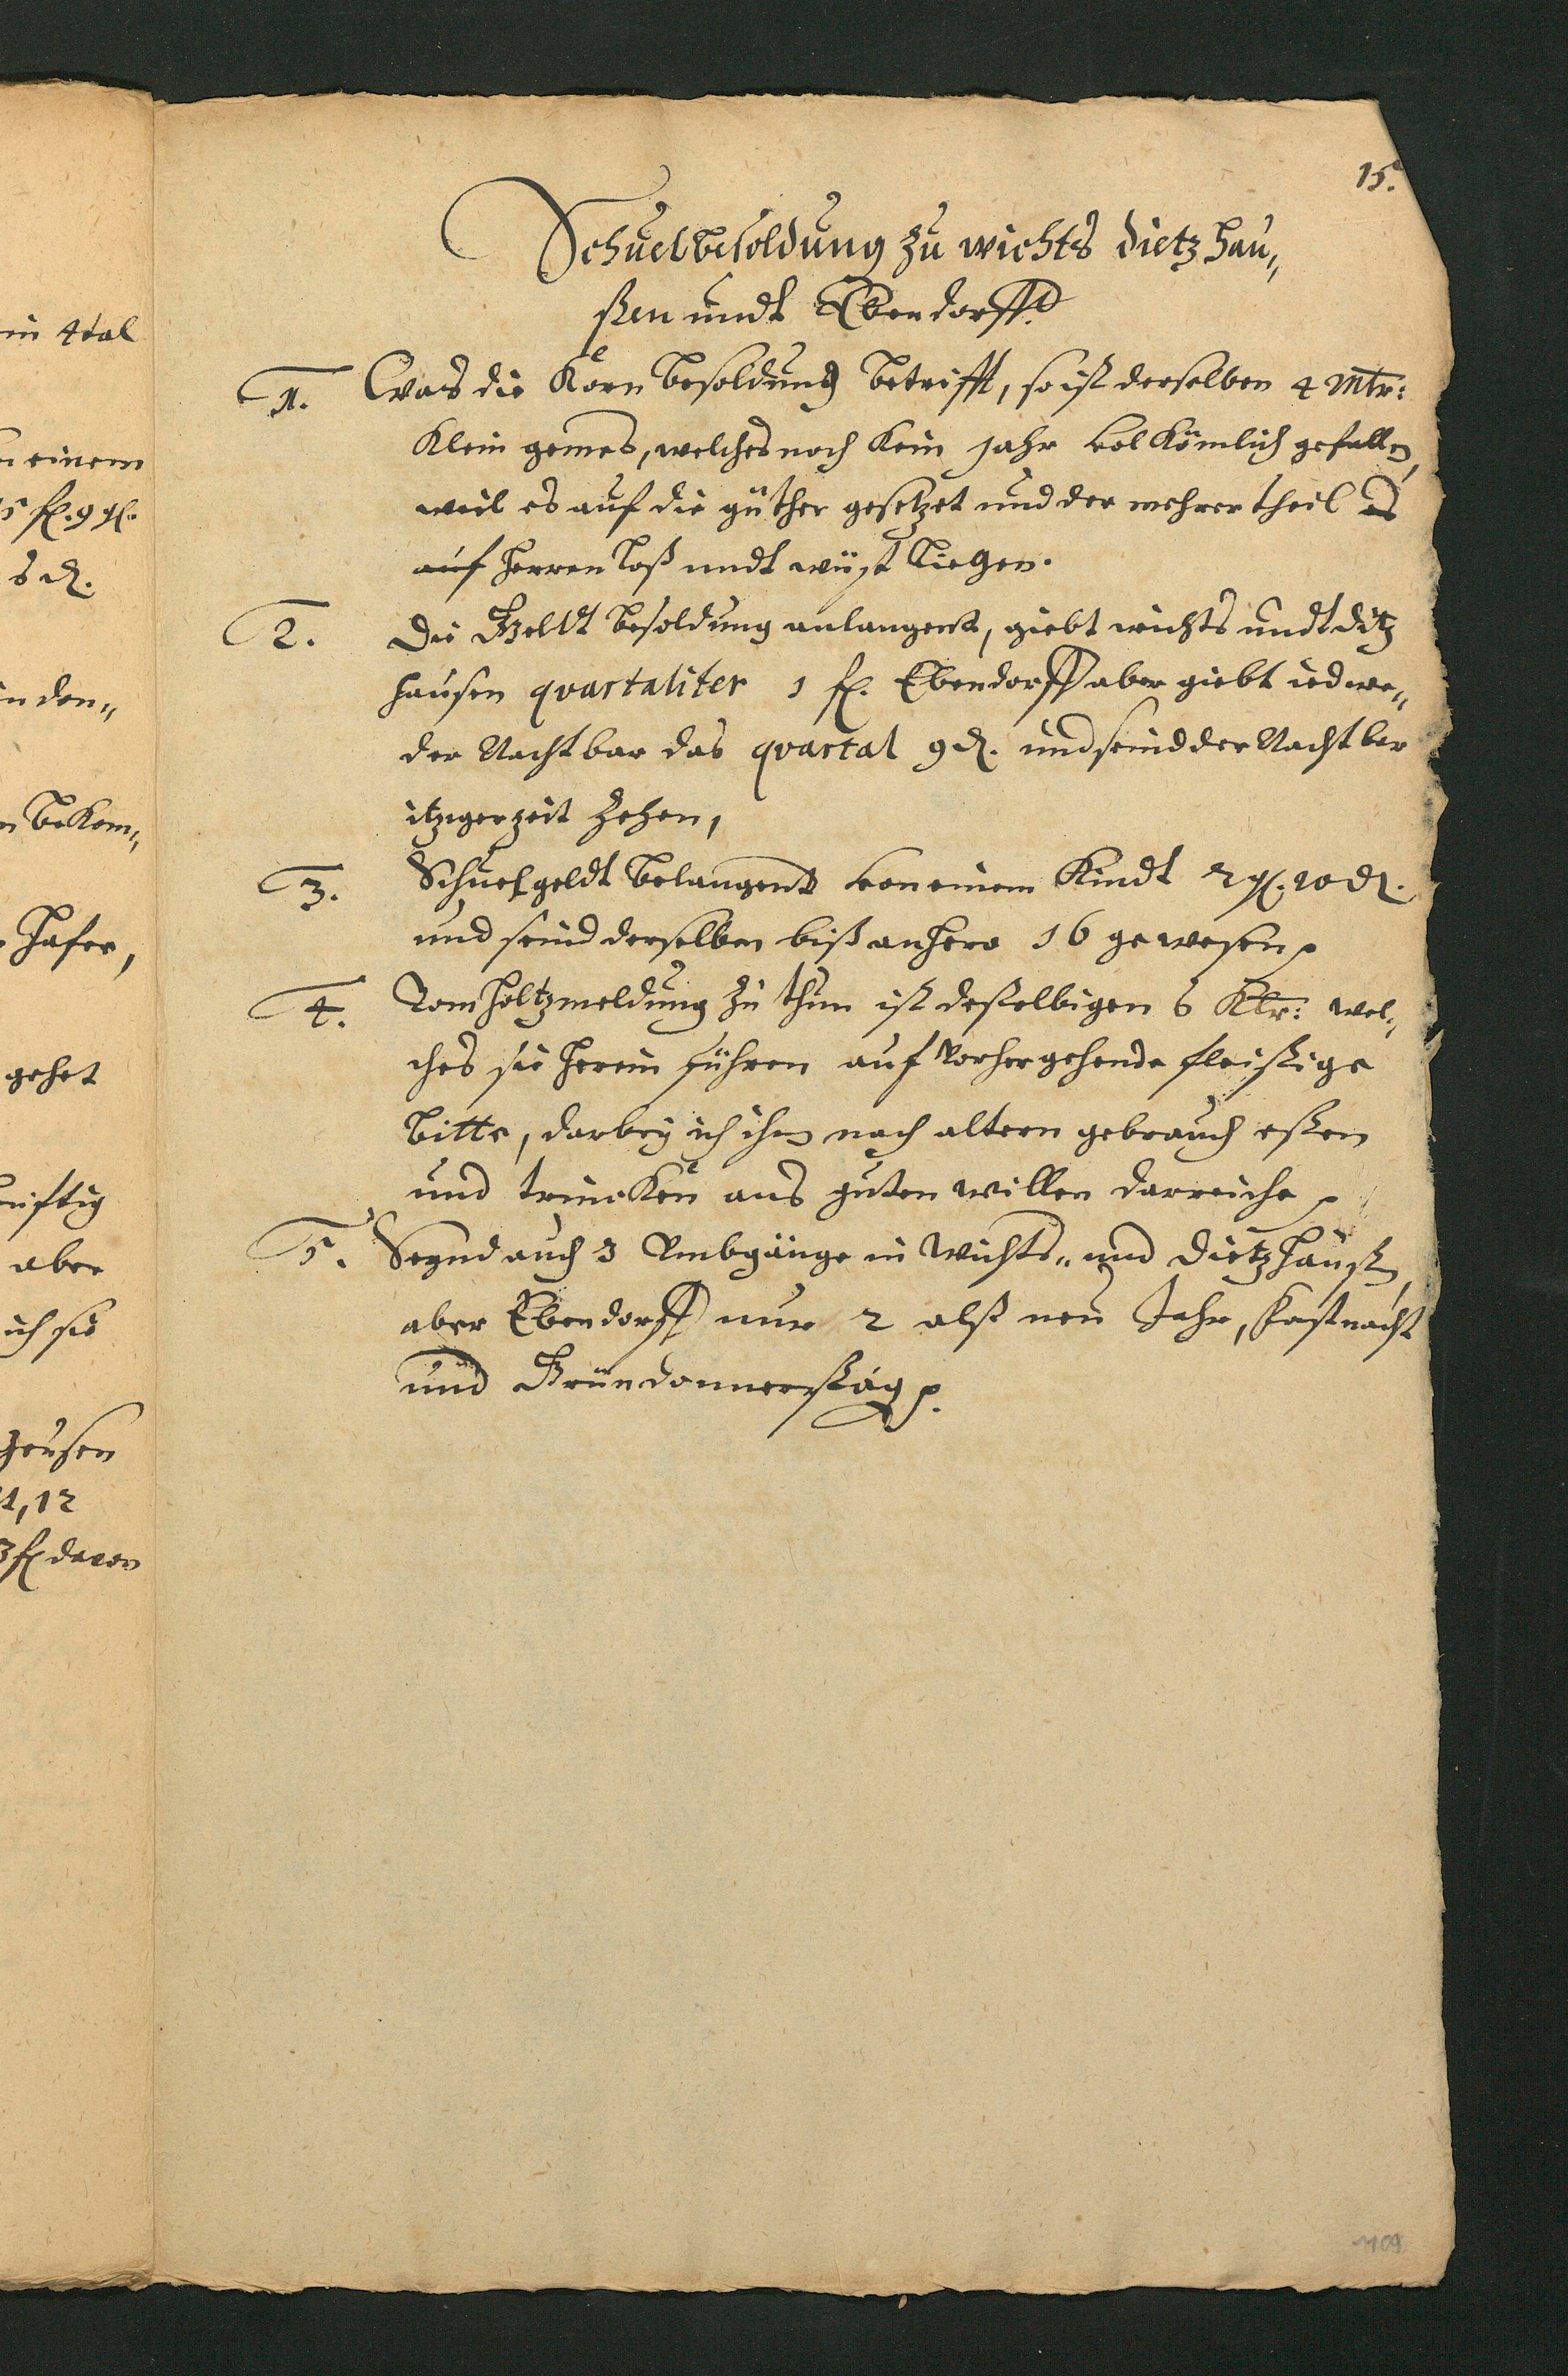 15.
Schuelbesoldung zu wichts dietzhau„
ßen undt Ebendorff.
1. Was die Korn besoldung betrifft, so ist derselben 4 Mtr:
Klein gemes, welches noch kein jahr volkömlich gefallen,
weil es auf die güther gesetzet und der mehrer theil es
auf herrenloß undt wüst liegen.
2. Die Geldt besoldung anlangent, giebt wichts undt ditz
hausen quartaliter 1 fl. Ebendorff aber giebt iedwe„
der Nachtbar das quartal 9 d. und seind der Nachtber
itziger zeit zehen,
3. Schuelgeldt belangent von einem Kindt 2 gl. 10 d.
und seind derselben biß anhero 16 gewesen
4. Vom holtz meldung zu thun ist deßelbigen 6 Klr: wel„
ches sie herein führen auf vorhergehende fleißige
bitte, darbey ich ihn nach altern gebrauch eßen
und trincken aus guten willen darreiche
5. Seynd auch 3 Umbgänge in Wichts„ und Dietzhaußn,
aber Ebendorff nur 2 alß neu Jahr, Fastnacht
und Gründonnerstag
in 4tal
einem
fl. 9 gl.
8 d.
in den„
bekom„
Hafer,
gehet
aber
ich sie
hausen
1, 12
3 fl davon
109